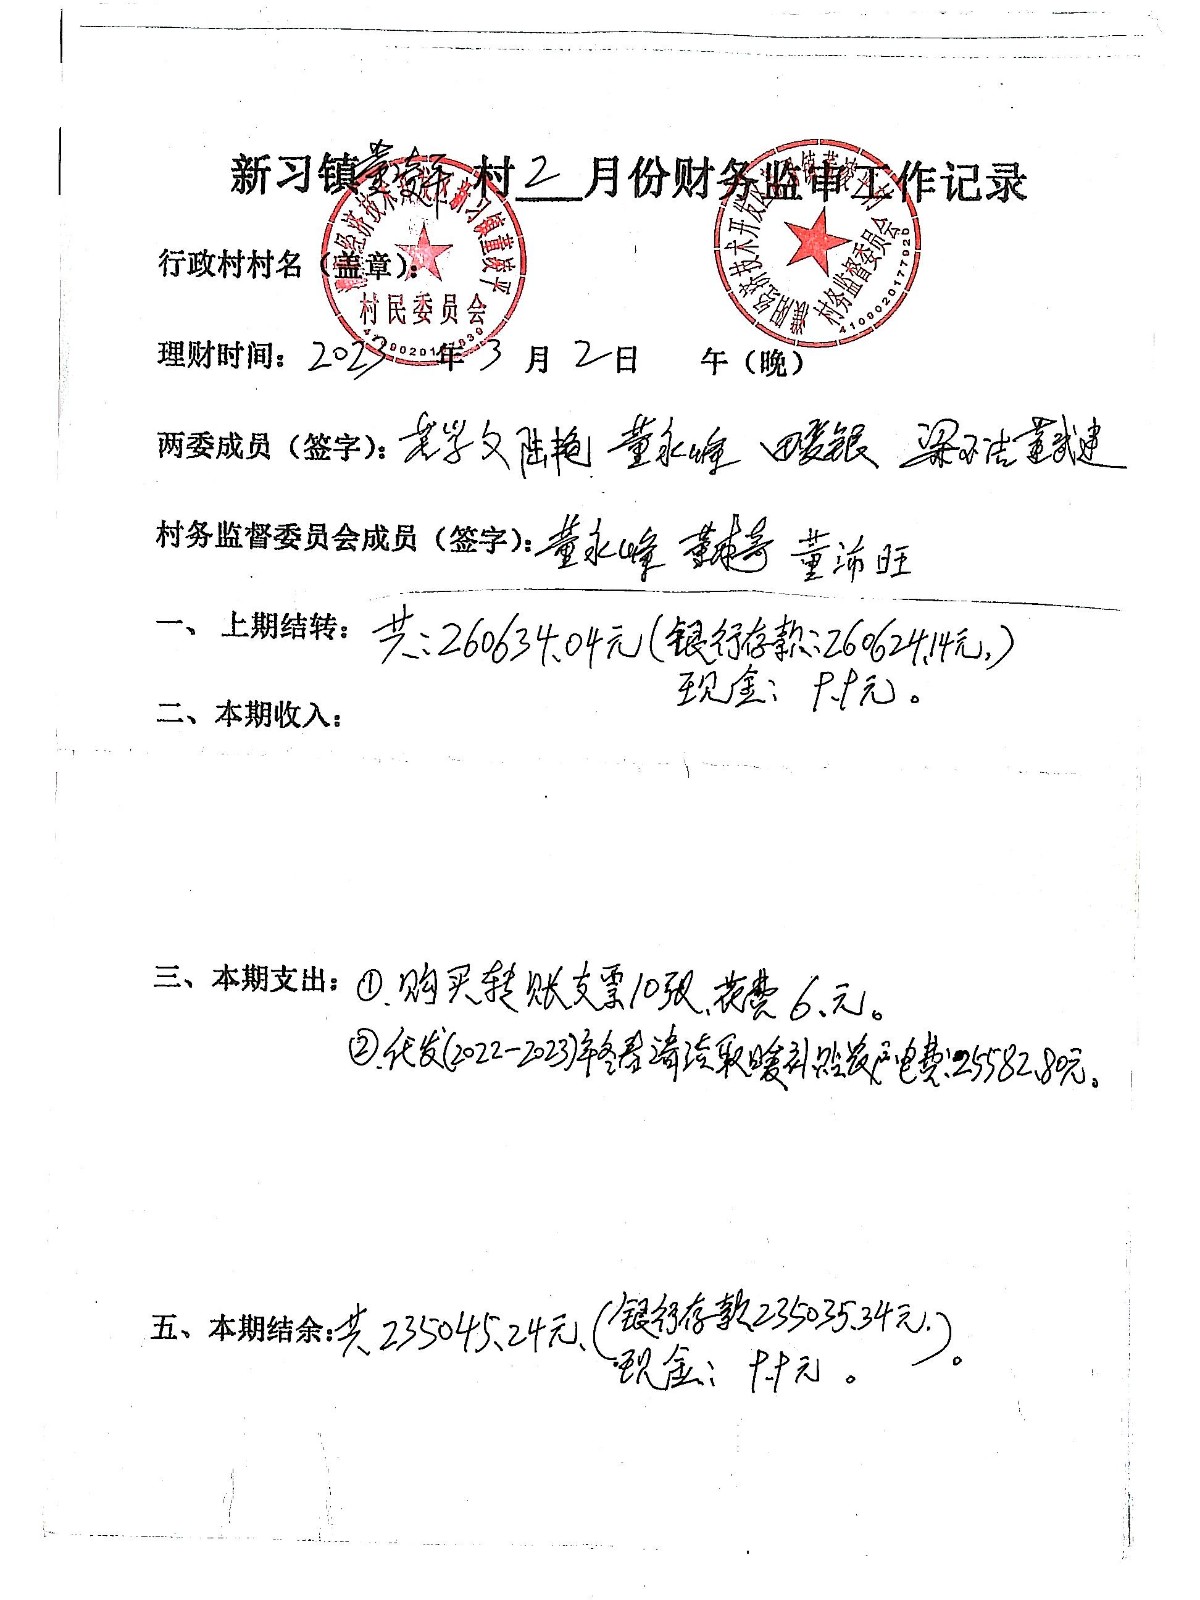 新习镇董陵平村2月份财务监审工作记录
行政村村名（盖章）:
村民委员会
濮阳经济技术开发区新习镇董陵平村
村务监督委员会
4109020177020
理财时间: 2023年3月2日 午（晚）
两委成员（签字）: 陆艳 董永峰 田爱银 董武建
村务监督委员会成员（签字）: 董永峰 董沛旺
一、上期结转: 共:260634.04元(银行存款:260624.14元,)
现金: 9.9元。
二、本期收入:
三、本期支出: ①.购买转账支票10张,花费6元。
②.代发(2022-2023)年冬春清洁取暖补贴农户电费:25582.80元。
五、本期结余:共235045.24元,(银行存款235035.34元,
现金: 9.9元。)。